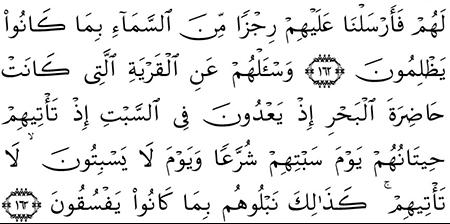 لَهُمْ فَأَرْسَلْنَا عَلَيْهِمْ رِجْزًا مِّنَ ٱلسَّمَآءِ بِمَا كَانُوا۟
يَظْلِمُونَ ١٦٢ وَسْـَٔلْهُمْ عَنِ ٱلْقَرْيَةِ ٱلَّتِى كَانَتْ
حَاضِرَةَ ٱلْبَحْرِ إِذْ يَعْدُونَ فِى ٱلسَّبْتِ إِذْ تَأْتِيهِمْ
حِيتَانُهُمْ يَوْمَ سَبْتِهِمْ شُرَّعًا وَيَوْمَ لَا يَسْبِتُونَ ۙ لَا
تَأْتِيهِمْ ۚ كَذَٰلِكَ نَبْلُوهُم بِمَا كَانُوا۟ يَفْسُقُونَ ١٦٣